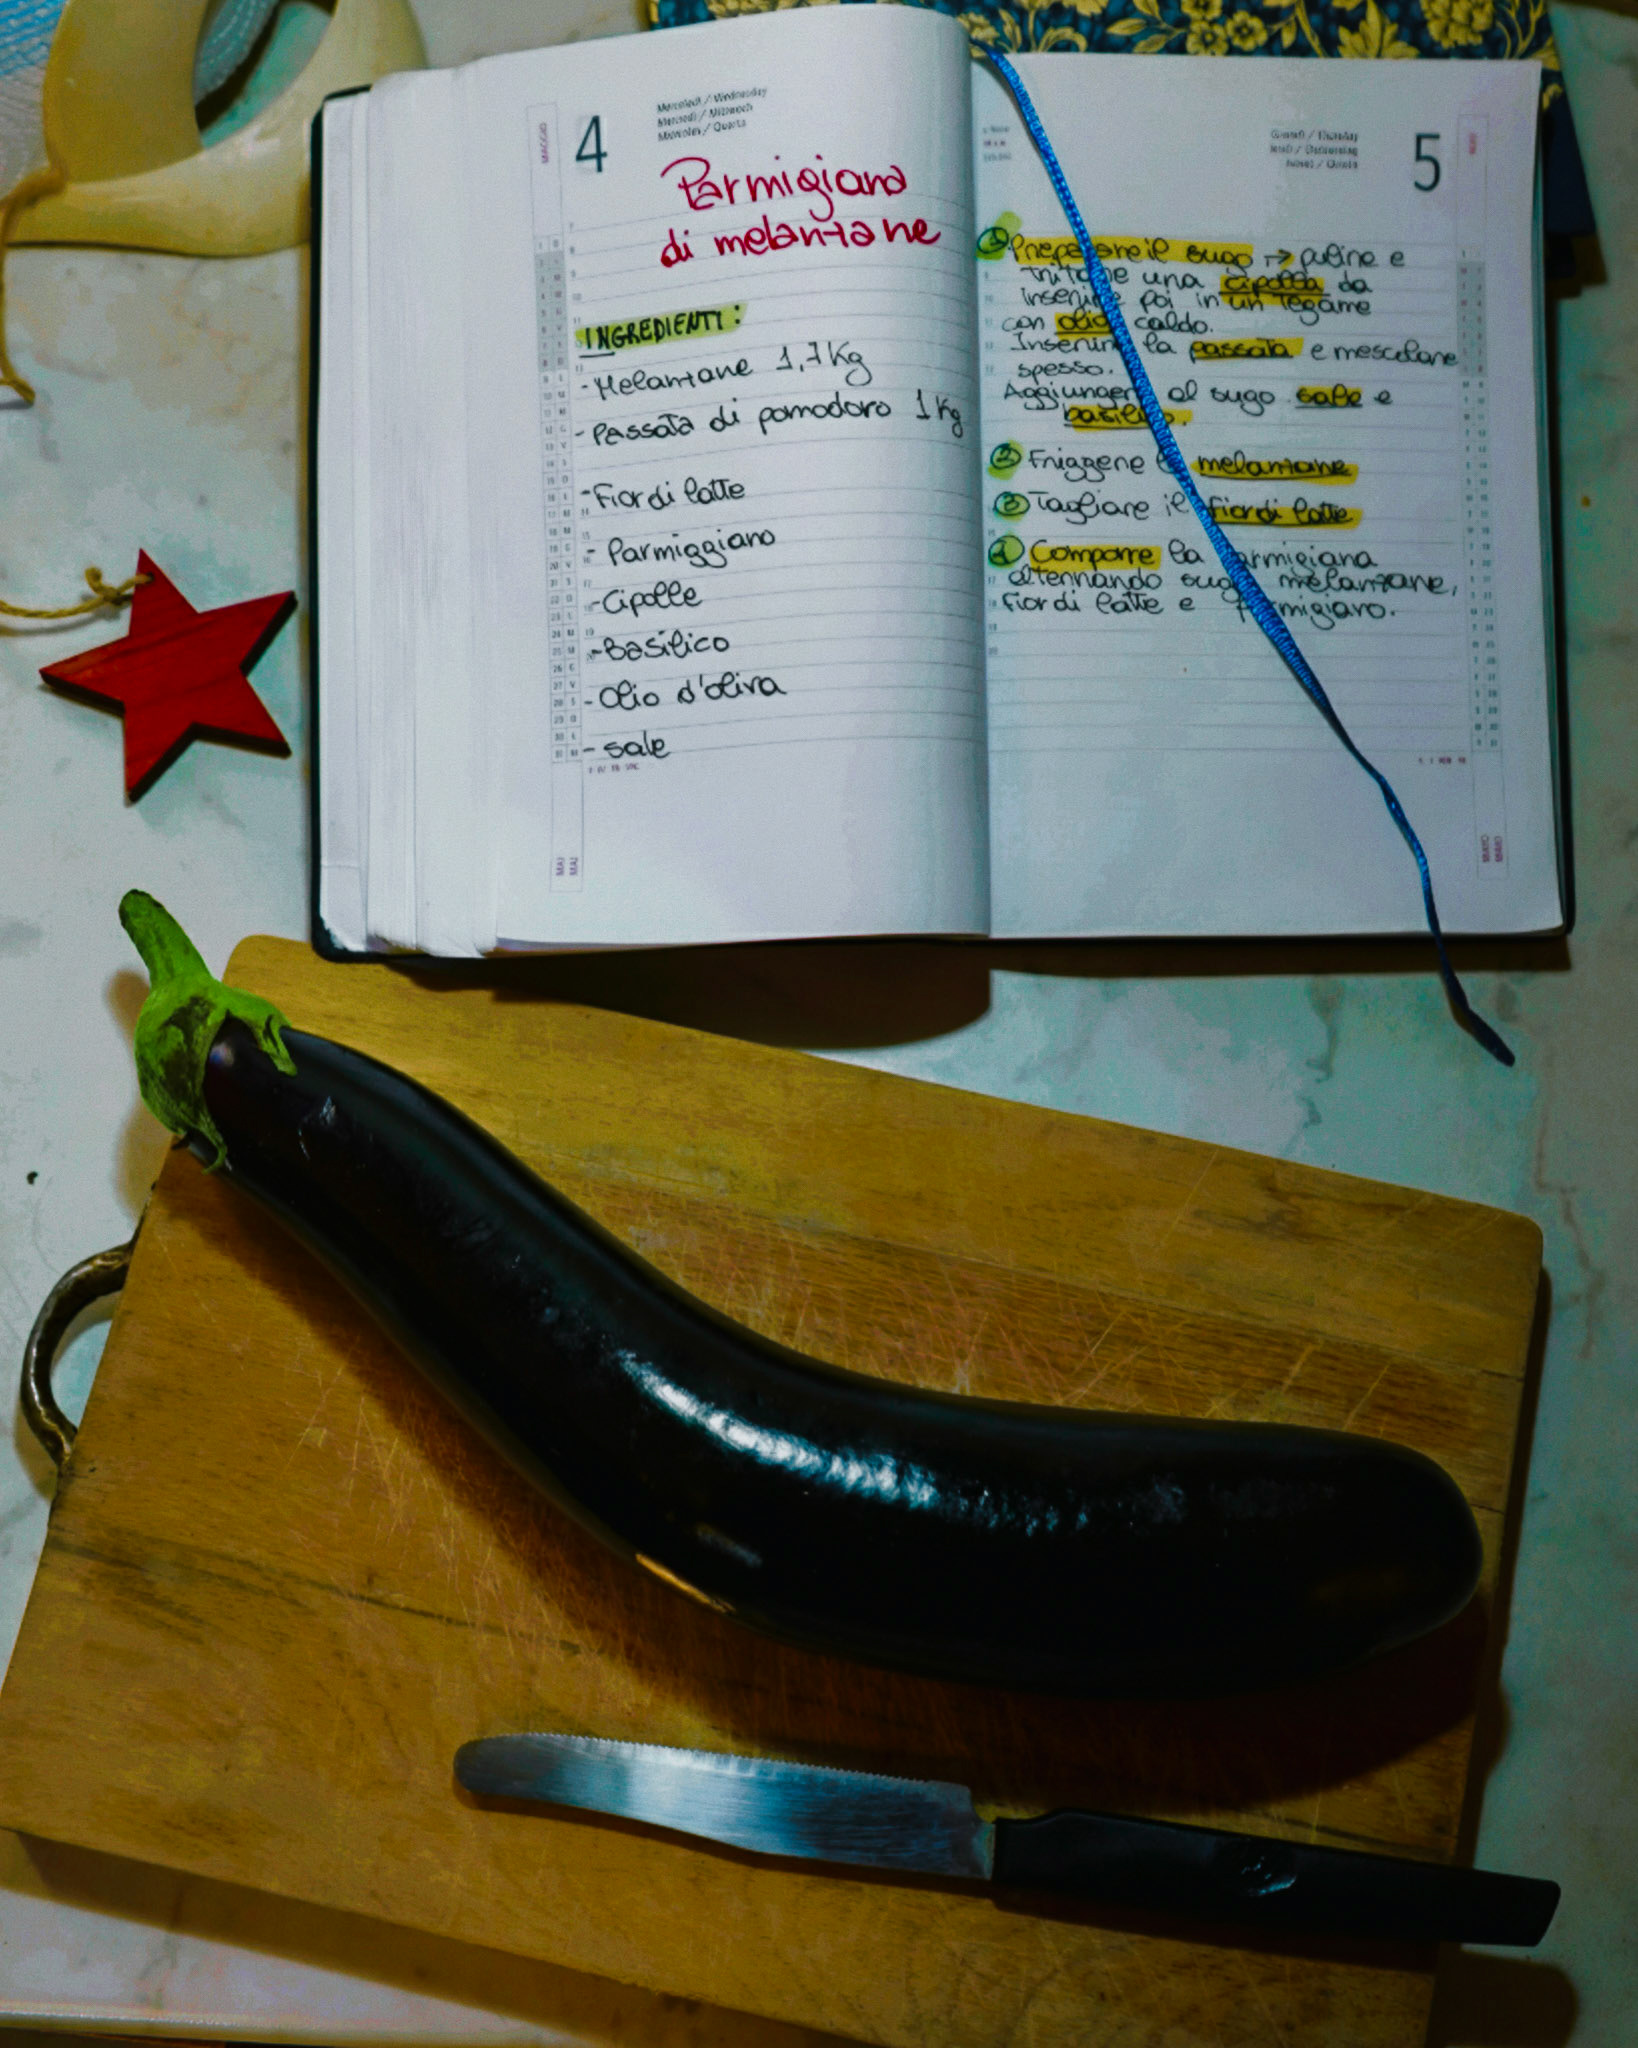 4
Mercoledì / Wednesday
Mercredi / Mittwoch
Miércoles / Quarta
MAGGIO
Parmigiana
di melanzane
INGREDIENTI:
- Melanzane 1,7 Kg
- Passata di pomodoro 1 Kg
- Fior di latte
- Parmiggiano
- Cipolle
- Basilico
- Olio d'oliva
- sale
MAI
MAJ
5
Giovedì / Thursday
Jeudi / Donnerstag
Jueves / Quinta
① Preparare il sugo → pulire e
tritare una cipolla da
inserire poi in un tegame
con olio caldo.
Inserire la passata e mescolare
spesso.
Aggiungere al sugo sale e
basilico.
② Friggere le melanzane
③ Tagliare il fior di latte
④ Comporre la parmigiana
alternando sugo, melanzane,
fior di latte e parmigiano.
MAYO
MAIO